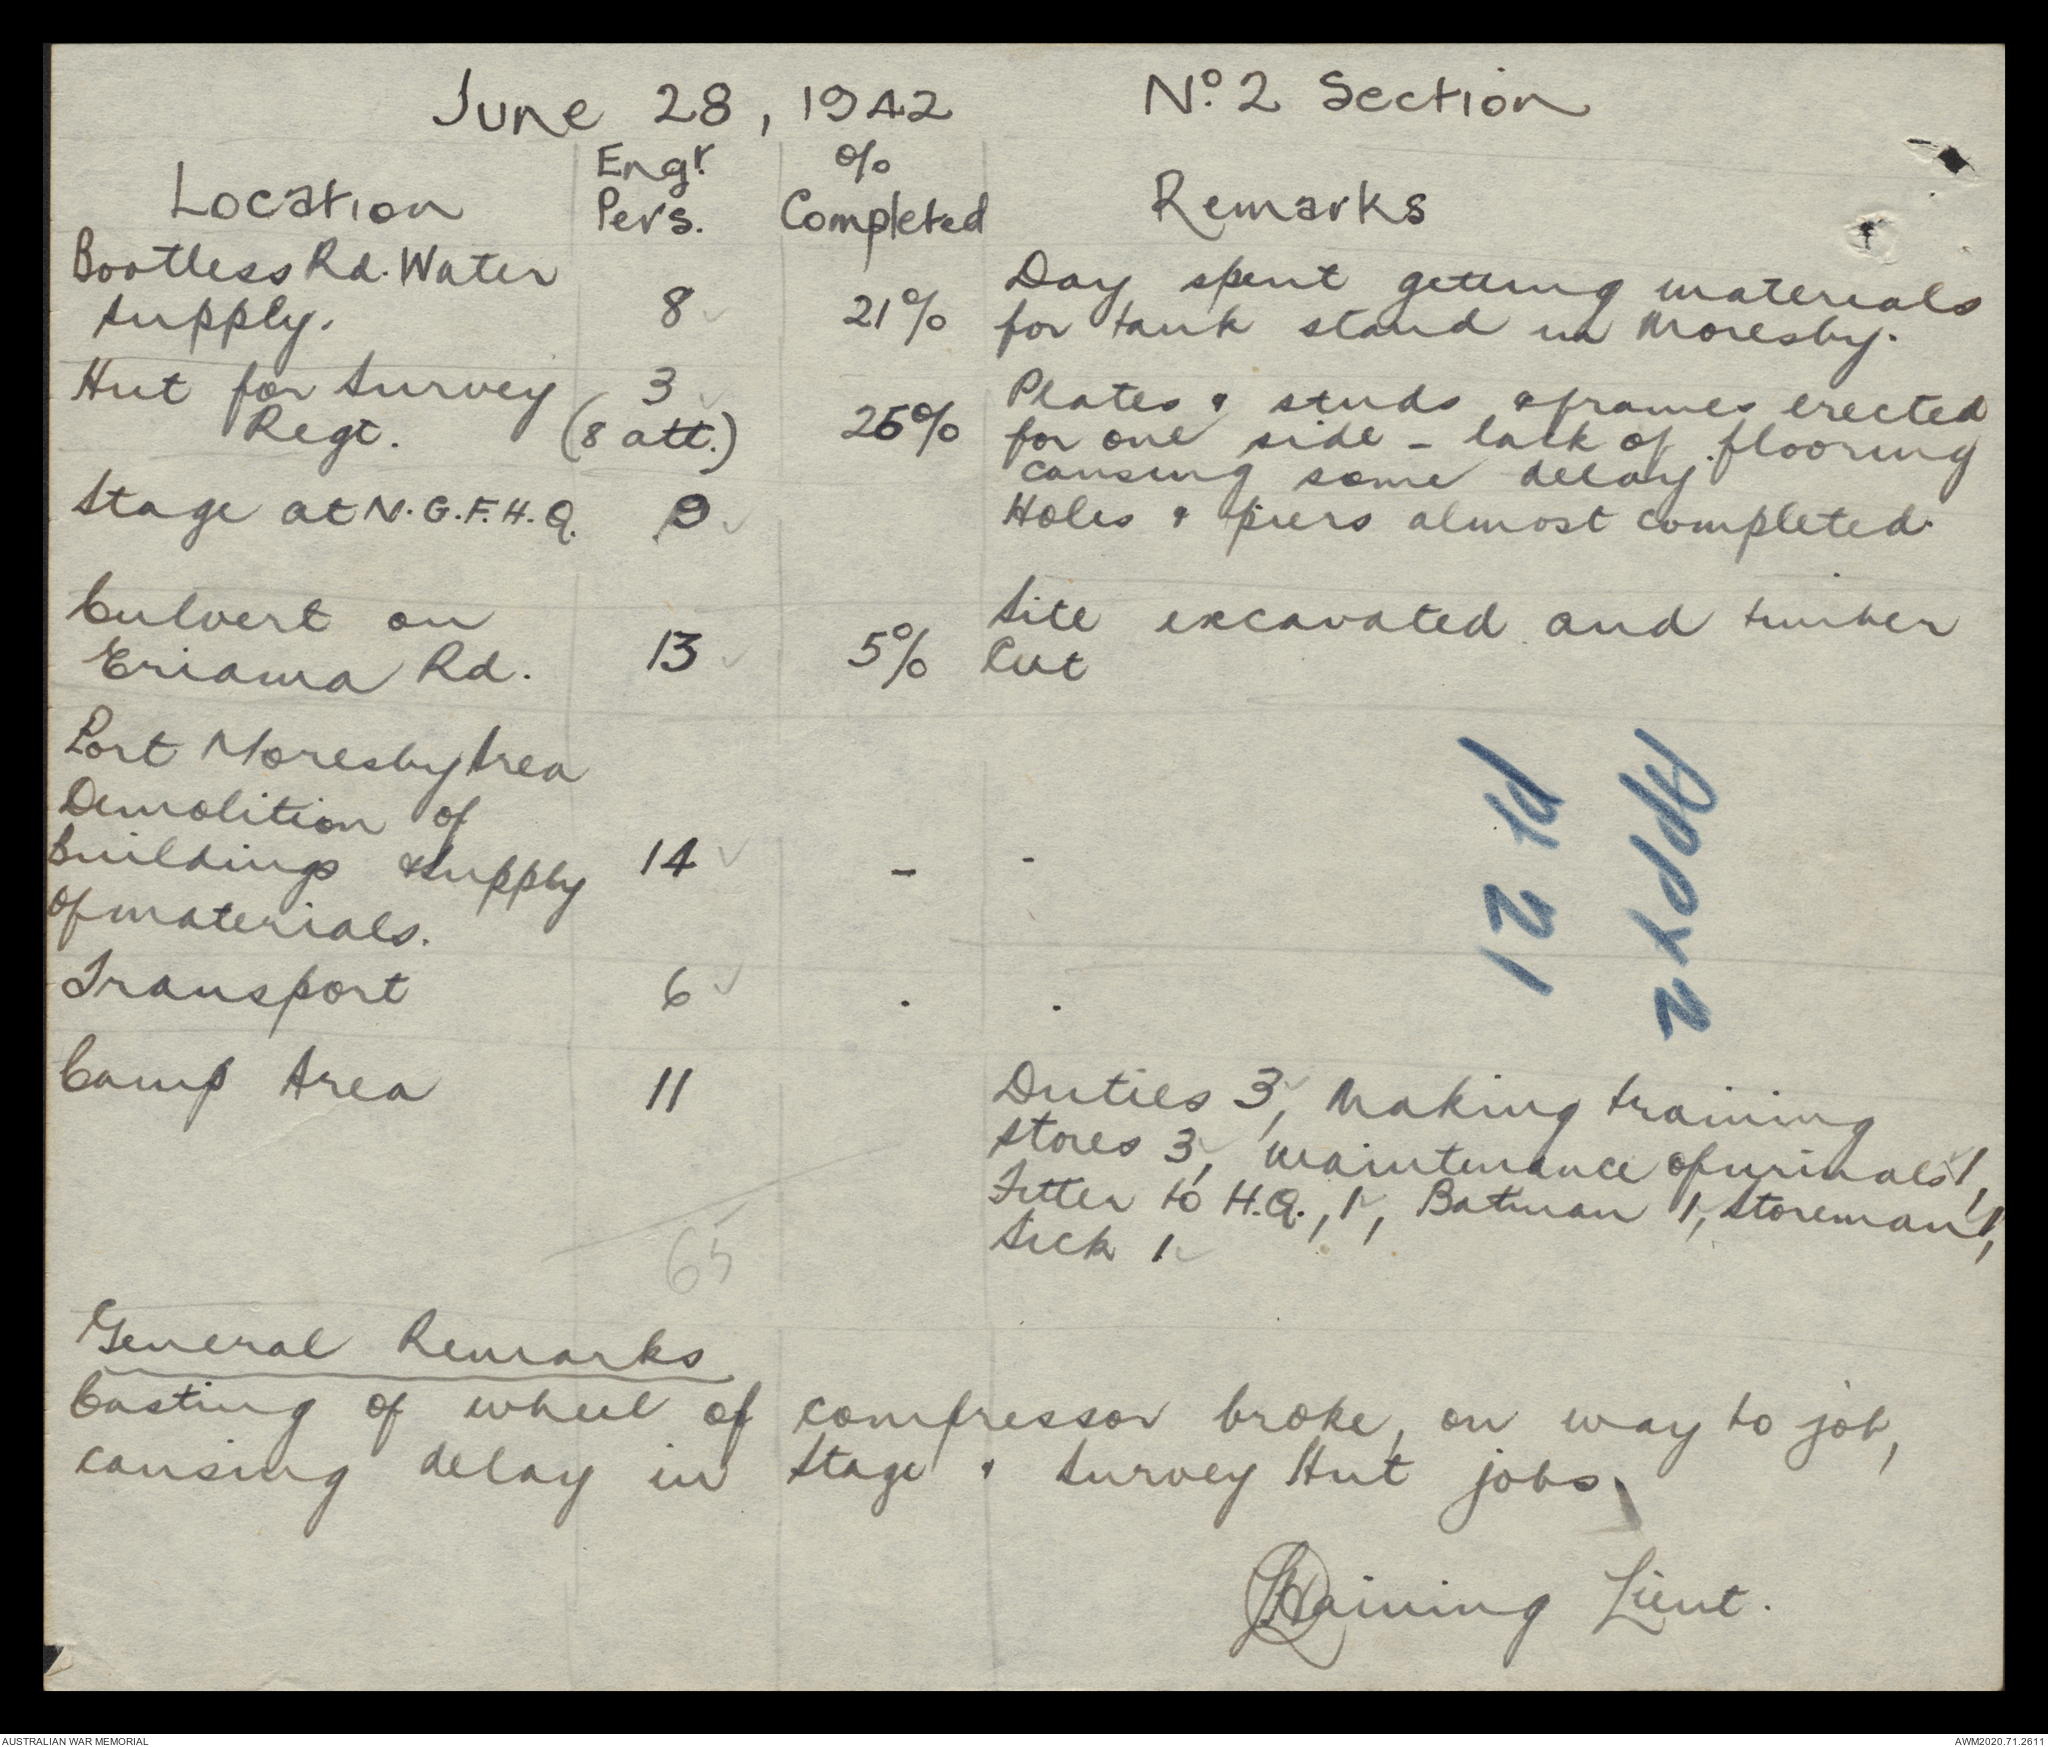 June 28, 1942 No. 2 Section
Location Engr. Pers. % Completed Remarks
Bootless Rd. Water
Supply. 8 21% Day spent getting materials
for tank stand in Moresby.
Hut for Survey 3 Plates & studs & frames erected
Regt. (8 att.) 25% for one side - lack of flooring
causing some delay
Stage at N.G.F.H.Q. 9 Holes & piers almost completed.
Culvert on Site excavated and timber
Eriama Rd. 13 5% Cut
Port Moresby Area
Demolition of
buildings & supply 14 - -
of materials.
Transport 6 . .
Camp Area 11 Duties 3, Making training
stores 3, maintenance of urinals 1,
Fitter to H.Q., 1, Batman 1, Storeman 1,
Sick 1
65
App x 2
12 Fd
General Remarks
Casting of wheel of compressor broke, on way to job,
causing delay in Stage & Survey Hut jobs
Haining Lieut.
AUSTRALIAN WAR MEMORIAL AWM2020.71.2611